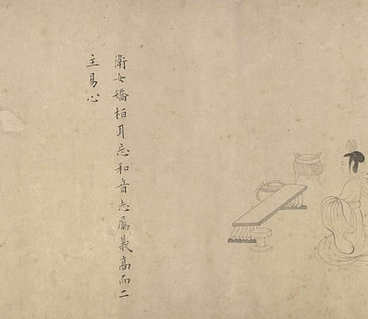 衛女矯桓耳忘和音志厲義高而二
主易心